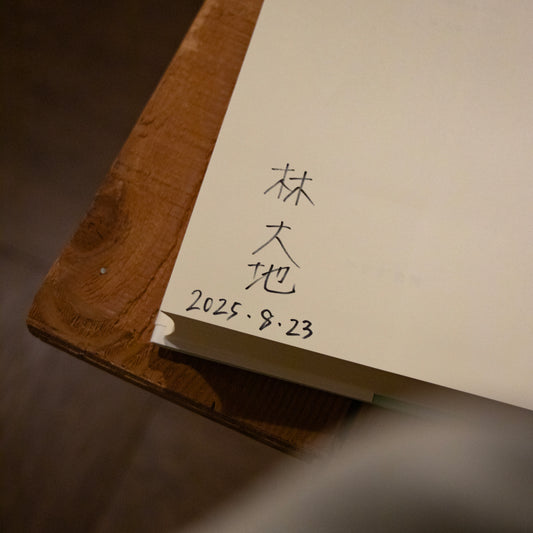 林
大
地
2025.8.23